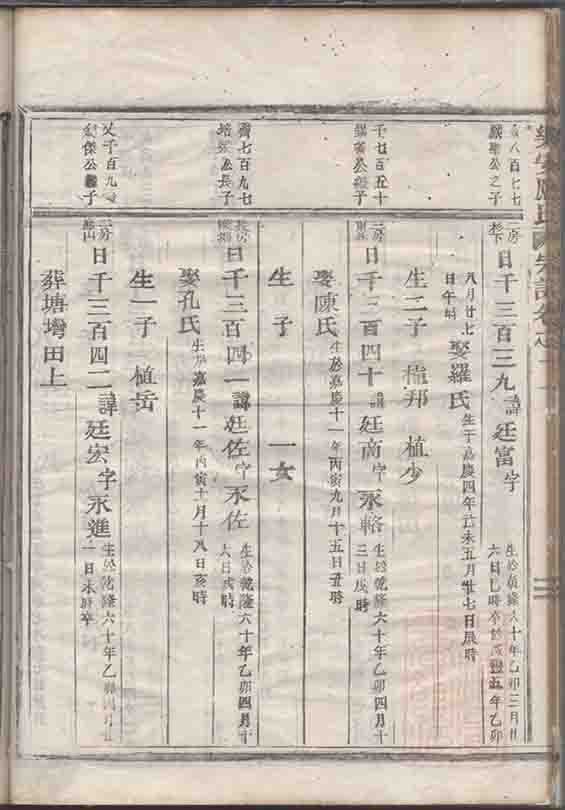 八百七七
公之子
二房
杉下
日千三百三九諱廷富字
生於乾隆六十年乙卯三月廿
六日巳時卒於咸豐五年乙卯
八月廿七
日午時
娶羅氏
生于嘉慶四年己未五月廿七日辰時
生二子 植邦 植少
千七百五十
公子
二房
日千三百四十諱廷高字永輅
生於乾隆六十年乙卯四月十
三日戌時
娶陳氏
生於嘉慶十一年丙寅九月十五日丑時
生 子 一女
齊七百九七
公長子
日千三百四一諱廷佐字永佐
生於乾隆六十年乙卯四月十
六日戌時
娶孔氏
生於嘉慶十一年丙寅十月十八日亥時
生一子 植岳
文千百九
傑公子
二房
日千三百四二諱廷宏字永進
生於乾隆六十年乙卯四月廿
一日未時卒
葬塘增田上